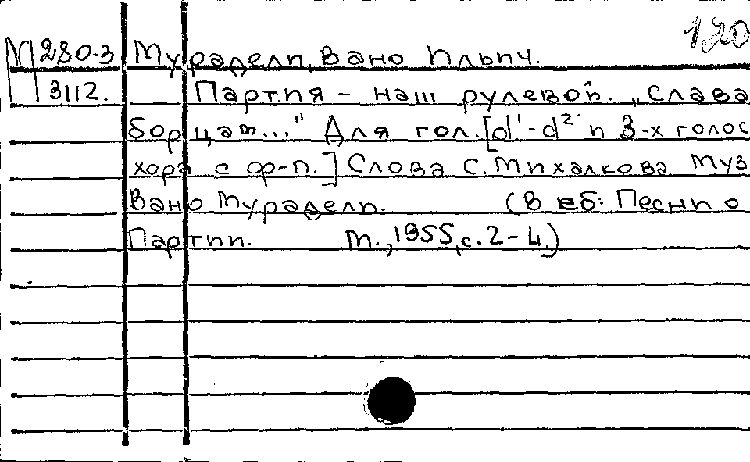 120
М280-3 Мурадели, Вано Ильич.
3112. Партия – наш рулевой. „Слава
борцам..." Для гол. [d¹-d² и 3-х голос
хора с ф-п.] Слова С. Михалкова. Муз
Вано Мурадели. (В сб: Песни о
Партии. М., 1955, с. 2-4.)